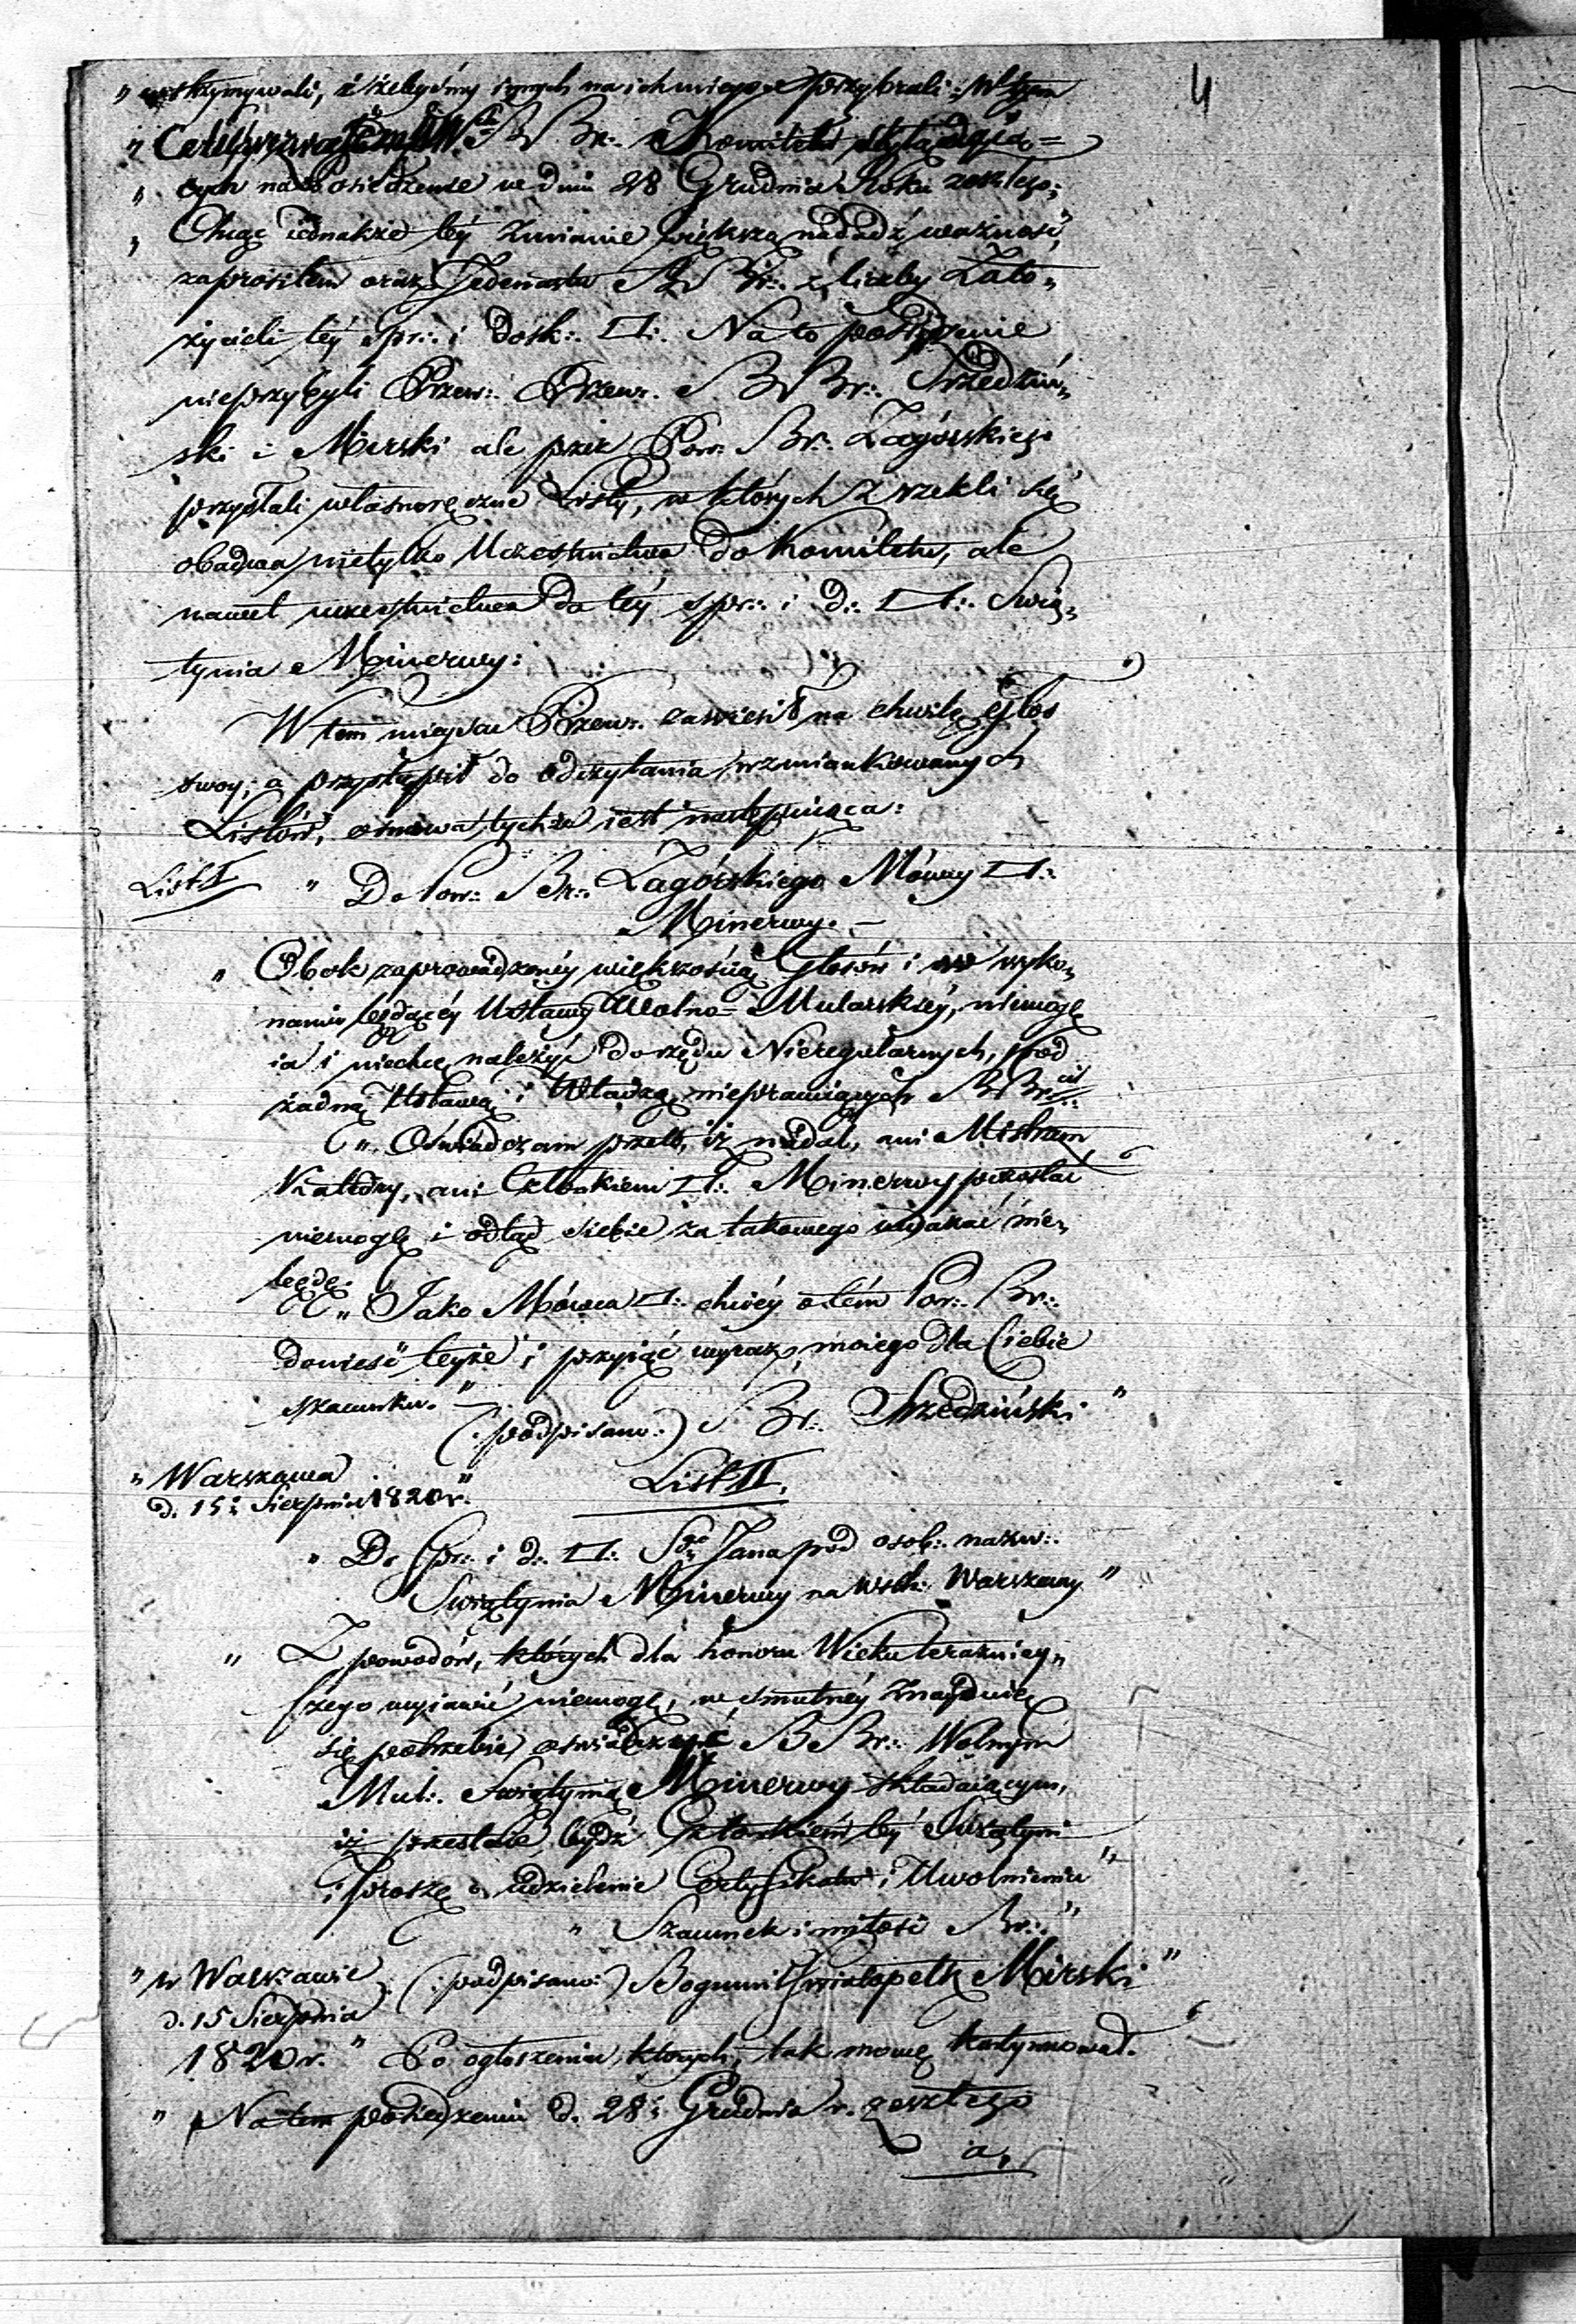 4
„ wstrzymywali, i żebyśmy innych na ich miejsce przybrali; w tym
„ Celu wezwałem BBr:. Komitet składają=
„ cych na Posiedzenie w dniu 28 Grudnia Roku zeszłego;
„ Chcąc iednakże téy zmianie większą nadadź ważność,
zaprosiłem oraz Jedenastu BBr:. z liczby Zało„
życieli téy spr:. i dosk:. □:. Na to posiedzenie
nieprzybyli Przew:. Przew:. BBr:. Srzedziń„
ski i Mirski ale przez Pow:. Br:. Zagórskiego
przysłali własnoręczne Listy, w których zrzekli się
obadwa nietylko Uczestnictwa do Komitetu, ale
nawet uczestnictwa do téy spr:. i d:. □:. Świą„
tynia Minerwy:
W tem mieyscu Przew:. zawiesił na chwilę głos
swoy; a przystąpił do odczytania wzmiankowanych
Listów, osnowa tychże iest następuiąca:
List I „ Do Pow:. Br:. Zagórskiego Mówcy □:.
Minerwy. –
„ Obok zaprowadzonéy większością Głosów i w wyko„
naniu będącéy Ustawy Wolno=Mularskiéy, niemogę
ia i niechcę należyć do rzędu Nieregularnych, pod
żadną Ustawą i Władzą niepracuiących BBr:.ci
„ Oświadczam przeto, iż nadal, ani Mistrzem
Katedry, ani Członkiem □:. Minerwy pozostać
niemogę i odtąd siebie za takowego uważać nie„
będę. „
„ Jako Mówca □:. chciéy o tém Pow:. Br:.
donieść teyże i przyiąć wyraz moiego dla Ciebie
szacunku. „
(:podpisano:) Br:. Srzedziński „
„ Warszawa List II.
d. 15 Sierpnia 1820 r. „
„ Do spr:. i d:. □:. Sgo Jana pod osob:. nazw:.
Świątynia Minerwy na Wsch:. Warszawy „
„ Z powodów, których dla honoru Wieku teraźniey„
szego wyiawić niemogę, w smutnéy znayduię
się potrzebie oświadczyć BBr:. Wolnym
Mul:. Świątynię Minerwy składaiącym,
iż przestaię bydź Członkiem téy Świątyni
i proszę o udzielenie Certyfikatu i Uwolnienia „
„ Szacunek i miłość Br:. „
„ w Warszawie (:podpisano:) Bogumił Światopełk Mirski „
d. 15 Sierpnia
1820 r. „ Po ogłoszeniu których, tak mowę kontynuował.
„ Na tem posiedzeniu d. 28 Grudnia r. zeszłego
a„